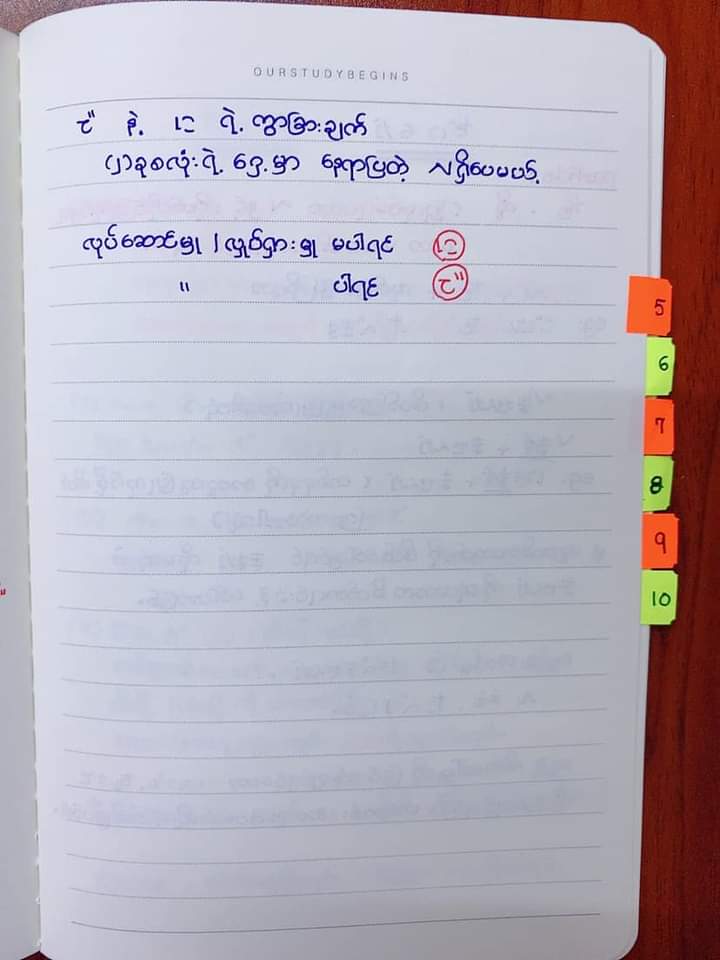 OURSTUDYBEGINS
で နဲ့ に ရဲ့ ကွာခြားချက်
(၂)ခုစလုံးရဲ့ ရှေ့မှာ နေရာပြတဲ့ N ရှိပေမယ့်
လုပ်ဆောင်မှု / လှုပ်ရှားမှု မပါရင် に
" ပါရင် で
5
6
7
8
9
10